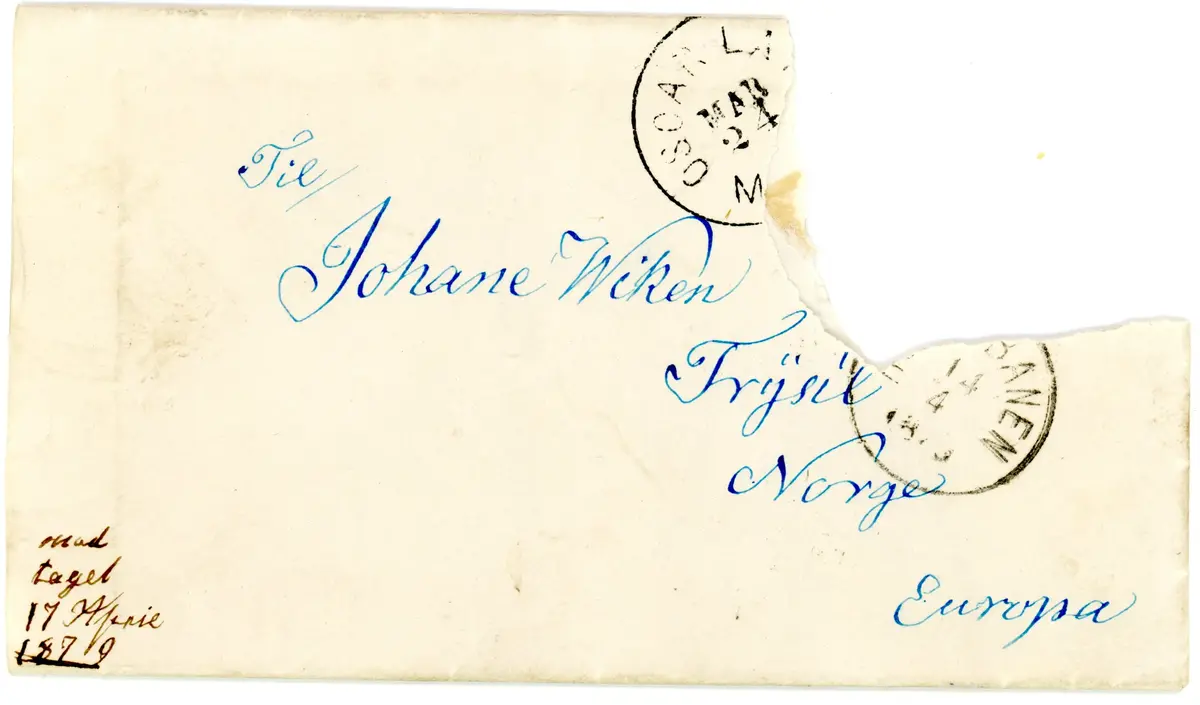 OSCAR LA
MAR
24
M
Til/
Johane Wiken
Trÿsil
Norge
Europa
ANEN
4
18
mod
taget
17 April
1879